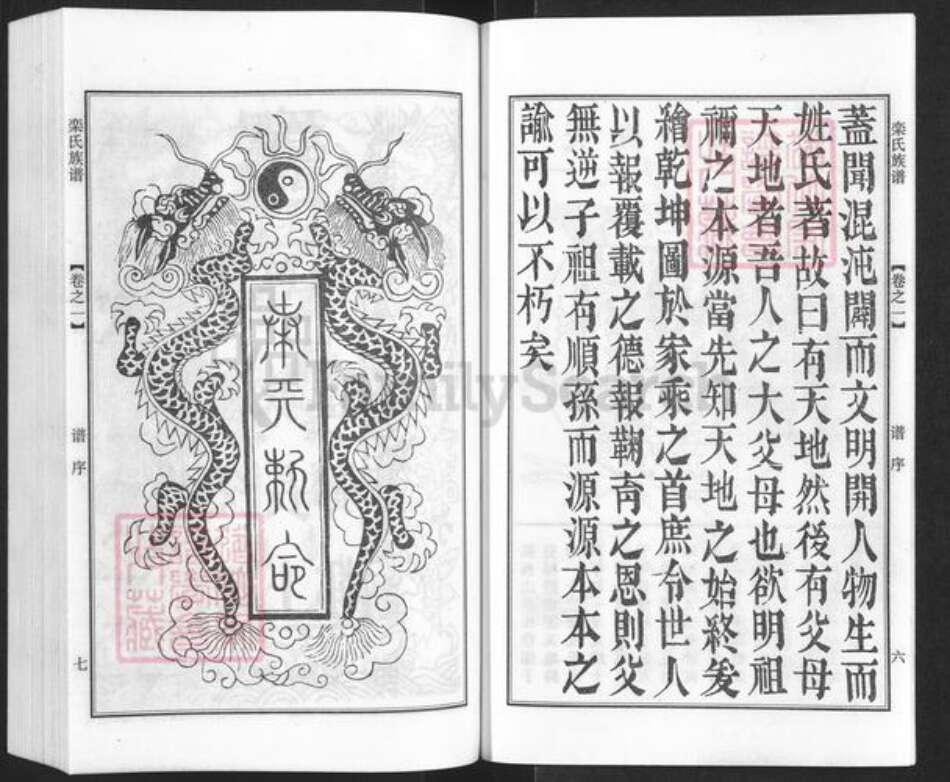 栾氏族谱
【卷之一】
谱序
六
蓋聞混沌闢而文明開人物生而
姓氏著故曰有天地然後有父母
天地者吾人之大父母也欲明祖
禰之本源當先知天地之始終爰
繪乾坤圖於家乘之首庶令世人
以報覆載之德報鞠育之恩則父
無逆子祖有順孫而源源本本之
諭可以不朽矣
奉天敕命
栾氏族谱
【卷之一】
谱序
七
FamilySearch